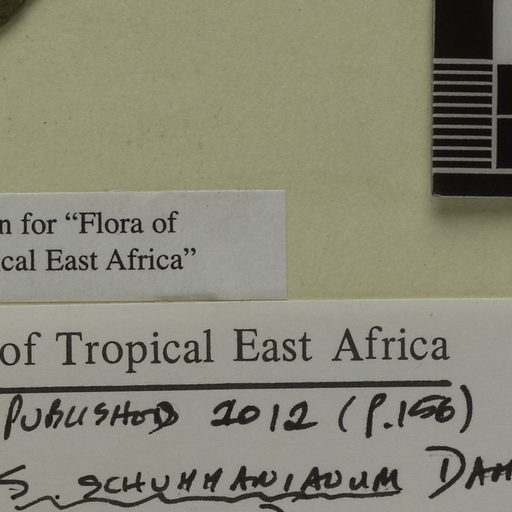 n for “Flora of
cal East Africa”
of Tropical East Africa
PUBLISHED 2012 (P.156)
S. SCHUMMANIANUM DAM